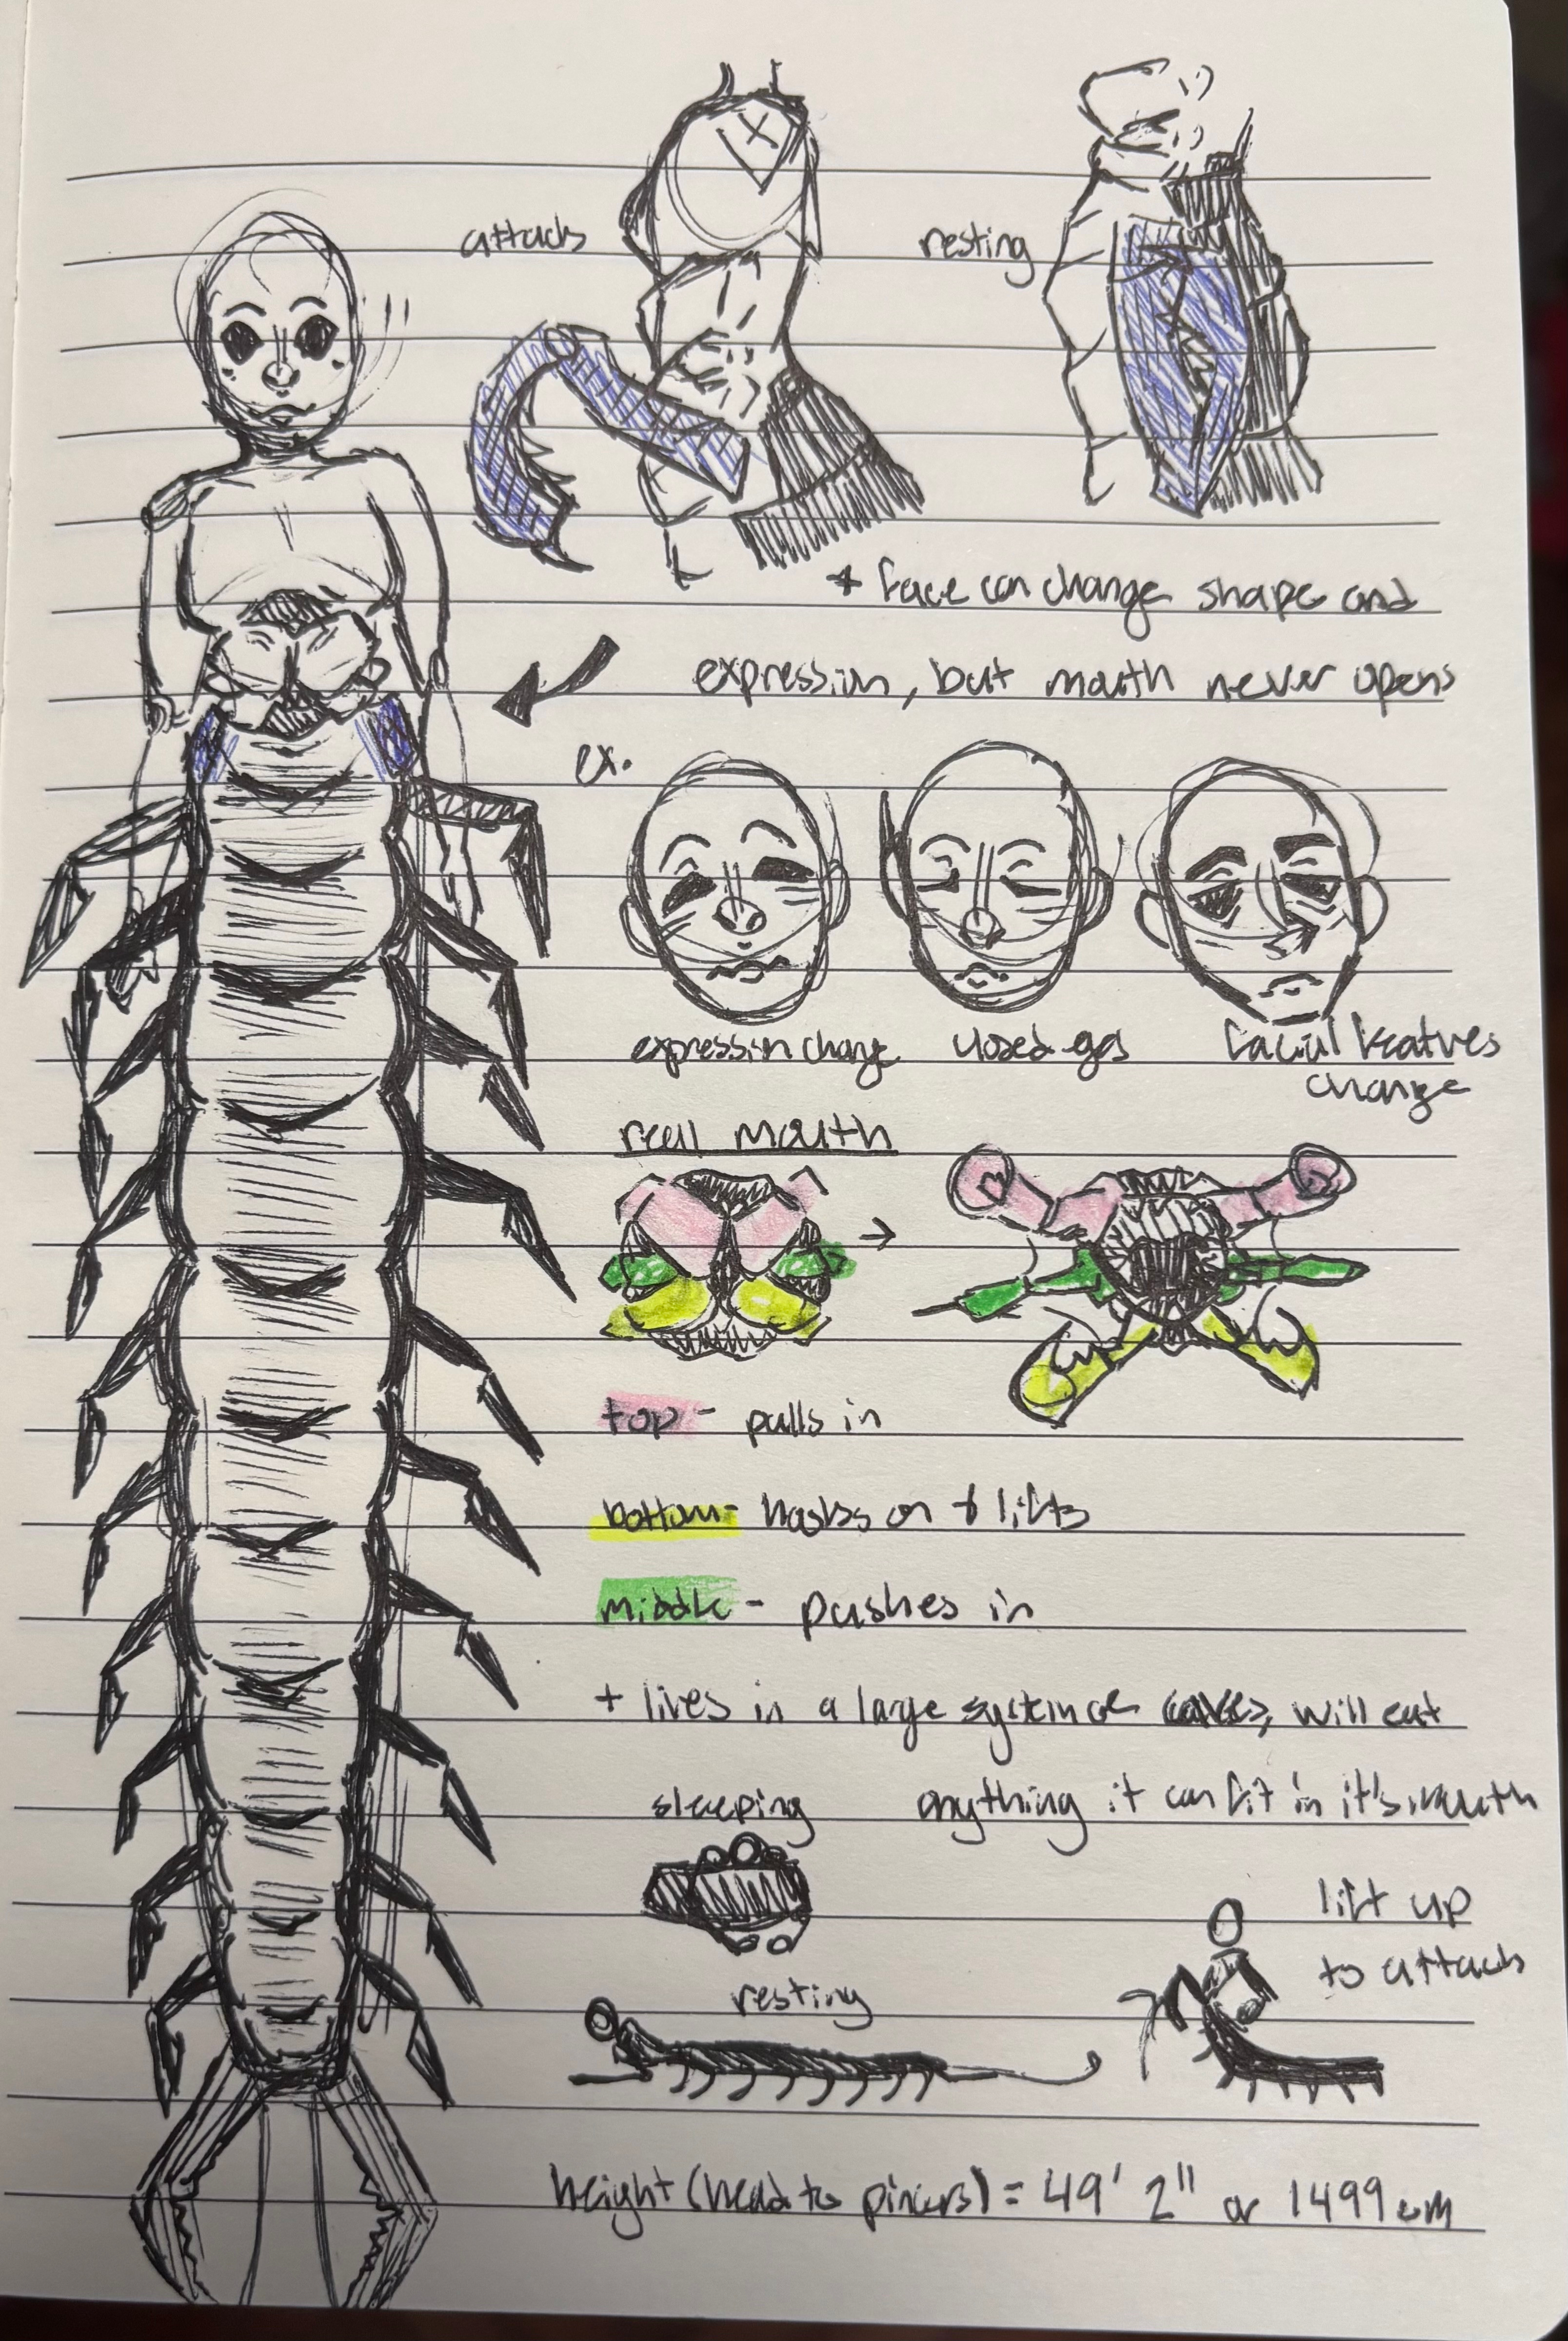 attack
resting
* face can change shape and
expression, but mouth never opens
ex.
expression change
closed eyes
facial features
change
real mouth
top - pulls in
bottom - hooks on & lifts
middle - pushes in
+ lives in a large system of caves, will eat
anything it can fit in it's mouth
sleeping
lift up
to attack
resting
height (head to pincers) = 49' 2" or 1499 cm